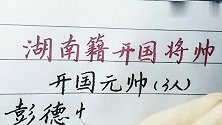 湖南籍开国将帅
开国元帅(3人)
彭德